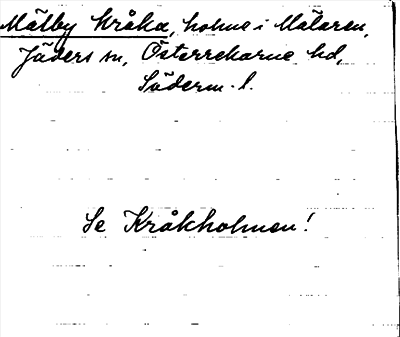 Mälby Kråka, holme i Mälaren,
Jäders sn, Österrekarne hd,
Söderm. l.
Se Kråkholmen!